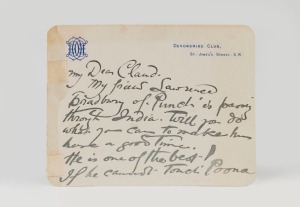 Devonshire Club,
St. James's Street. S.W.
My Dear Claud.
My friend Lawrence
Bradbury of "Punch" is passing
through India. Will you do
what you can to make him
have a good time.
He is one of the best!
If he cannot Touch Poona